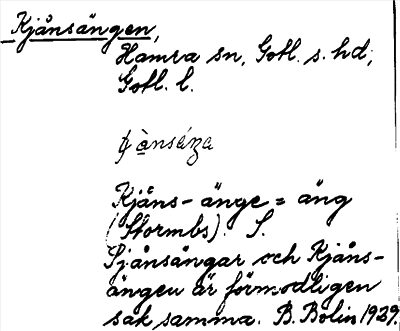 Kjånsängen,
Hamra sn, Gotl. s. hd,
Gotl. l.
Kjåns-änge = äng
(Stormbs). S.
Sjånsängar och Kjåns-
ängen är förmodligen
sak samma. B. Bolin 1939.